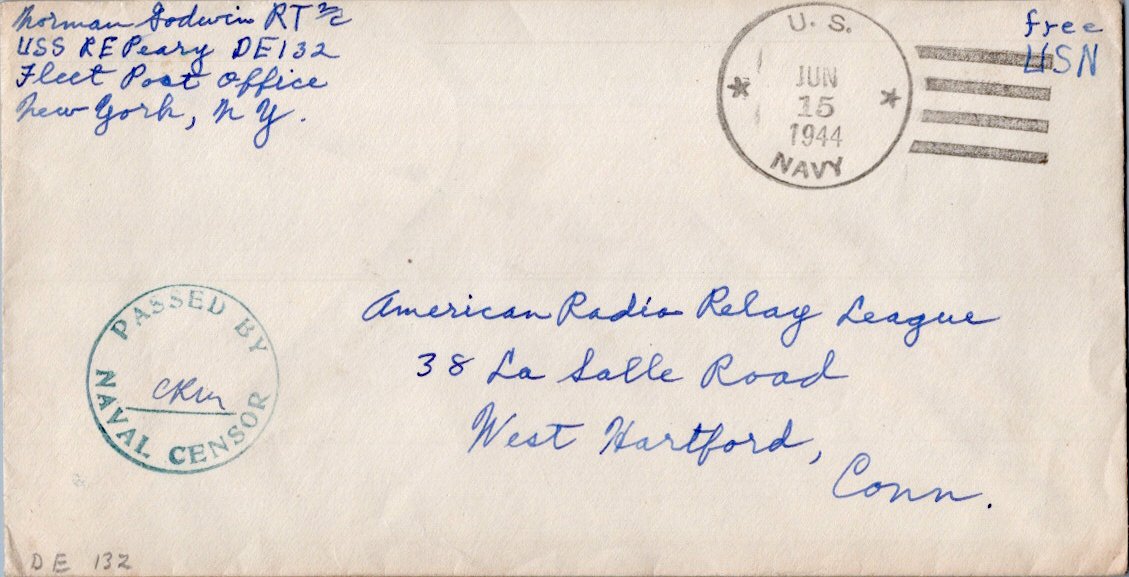 Norman Godwin RT 2/c
USS REPeary DE132
Fleet Post Office
New York, N Y.
free
USN
U. S.
JUN
15
1944
NAVY
PASSED BY
NAVAL CENSOR
American Radio Relay League
38 La Salle Road
West Hartford,
Conn.
DE 132